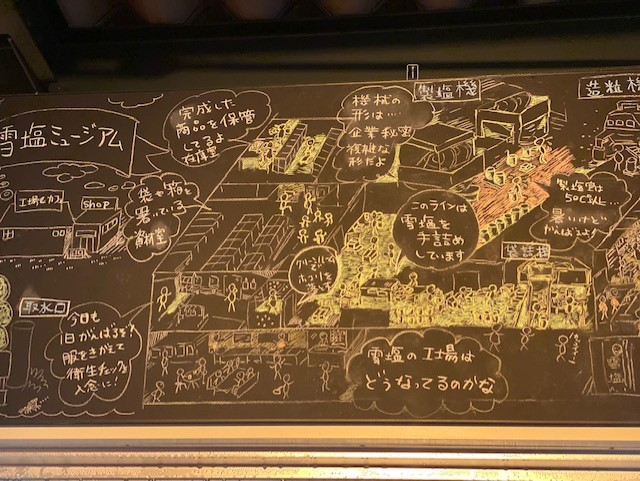 雪塩ミュージアム
工場&カフェ
shop
取水口
完成した
商品を保管
してるよ
在庫室
袋や箱を
置いている
資材室
今日も
1日がんばるぞ!
服をきがえて
衛生チェックも
入念に!
機械の
形は…
企業秘密
複雑な
形だよ
製塩機
造粒機
このラインは
雪塩を
手詰め
しています
製塩室は
50℃以上…
暑いけど
がんばるよ!
袋詰機
雪塩の工場は
どうなってるのかな